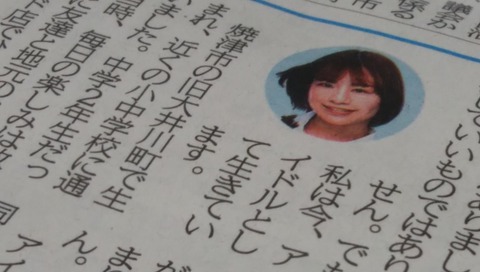 議会が
係る
市
ありまし
していいものではあり
せん。でも
私は今、ア
イドルとし
て生きてい
ます。
焼津市の旧大井川町で生
まれ、近くの小中学校に通
いました。中学2年生だっ
当時、毎日の楽しみは
に友達と地元の
ド店で
が
まり
ん。
アイ
同